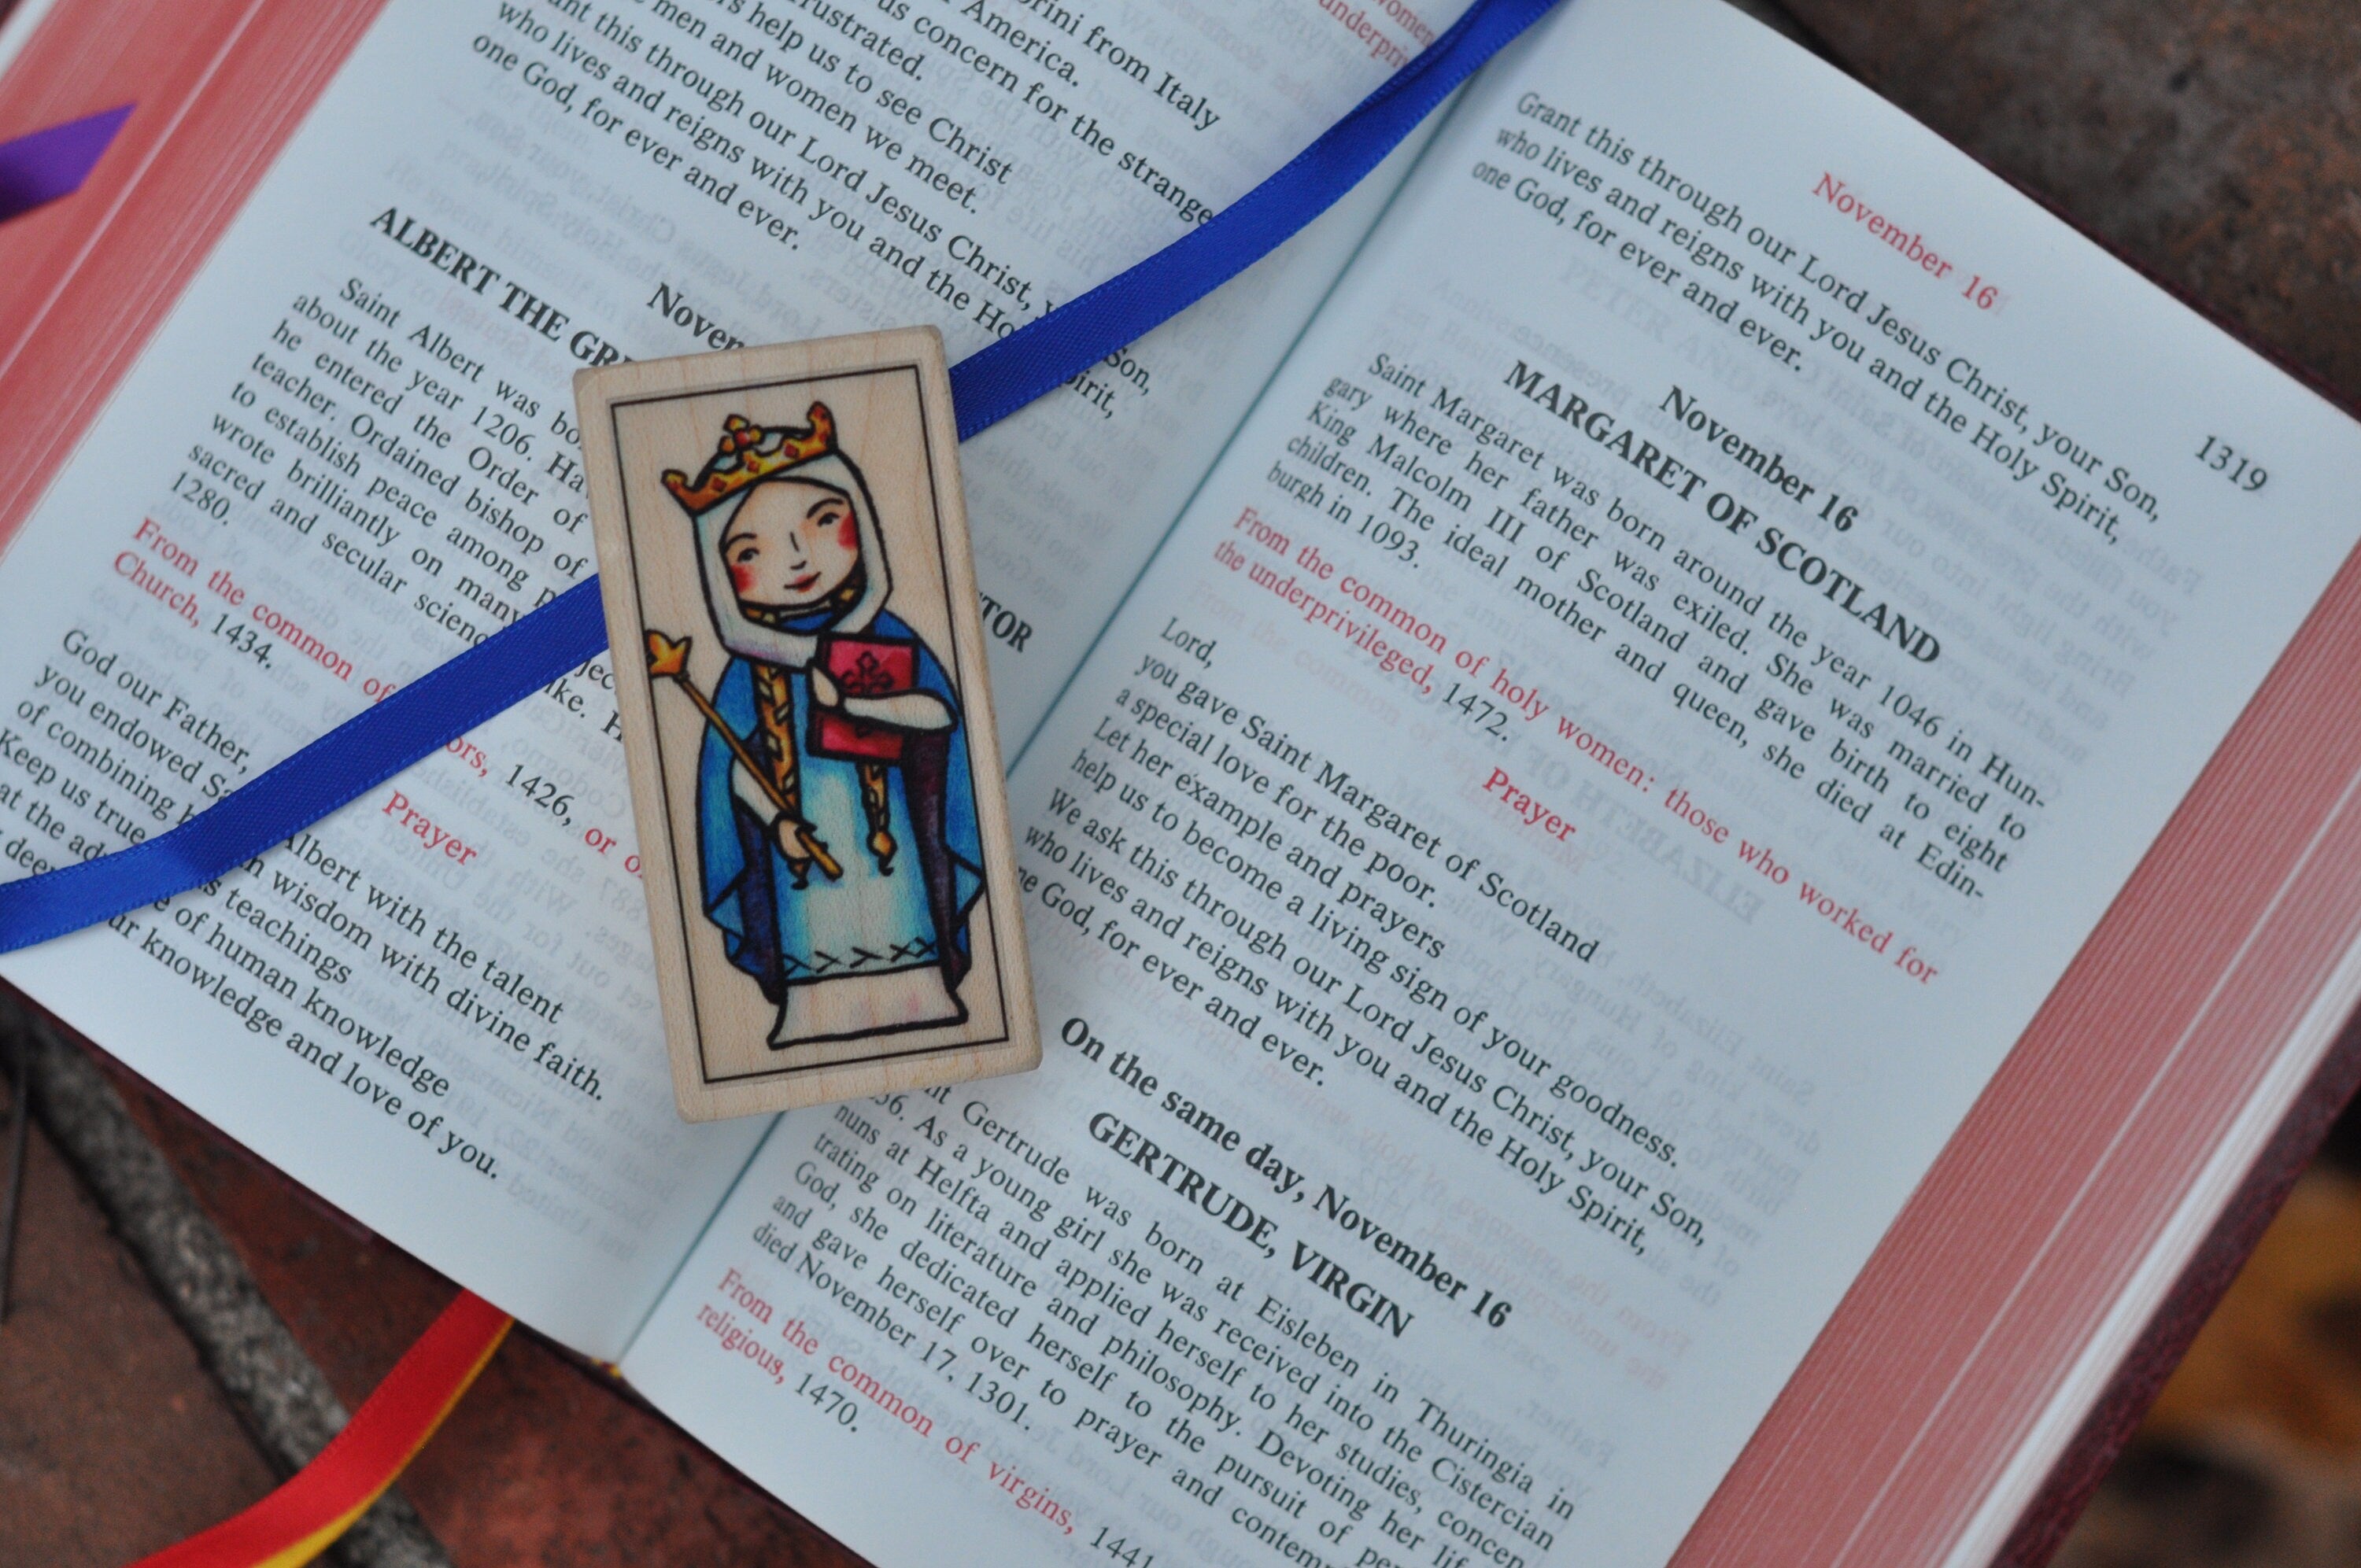 orini from Italy
America.
us concern for the strange
frustrated.
help us to see Christ
men and women we meet.
ant this through our Lord Jesus Christ, your Son,
who lives and reigns with you and the Holy Spirit,
one God, for ever and ever.
Noven
ALBERT THE GRE
CTOR
Saint Albert was bo
about the year 1206. Ha
he entered the Order of
teacher. Ordained bishop of
to establish peace among p
wrote brilliantly on many
sacred and secular scienc
1280.
From the common of
ors, 1426, or o
Church, 1434.
Prayer
God our Father,
you endowed Sa Albert with the talent
of combining h n wisdom with divine faith.
Keep us true s teachings
at the ad e of human knowledge
deep ur knowledge and love of you.
November 16
1319
Grant this through our Lord Jesus Christ, your Son,
who lives and reigns with you and the Holy Spirit,
one God, for ever and ever.
November 16
MARGARET OF SCOTLAND
Saint Margaret was born around the year 1046 in Hun-
gary where her father was exiled. She was married to
King Malcolm III of Scotland and gave birth to eight
children. The ideal mother and queen, she died at Edin-
burgh in 1093.
From the common of holy women: those who worked for
the underprivileged, 1472.
Prayer
Lord,
you gave Saint Margaret of Scotland
a special love for the poor.
Let her example and prayers
help us to become a living sign of your goodness.
We ask this through our Lord Jesus Christ, your Son,
who lives and reigns with you and the Holy Spirit,
ne God, for ever and ever.
On the same day, November 16
GERTRUDE, VIRGIN
nt Gertrude was born at Eisleben in Thuringia in
56. As a young girl she was received into the Cistercian
nuns at Helfta and applied herself to her studies, concen
trating on literature and philosophy. Devoting her life
God, she dedicated herself to the pursuit of per
and gave herself over to prayer and contemp
died November 17, 1301.
From the common of virgins, 1441
religious, 1470.